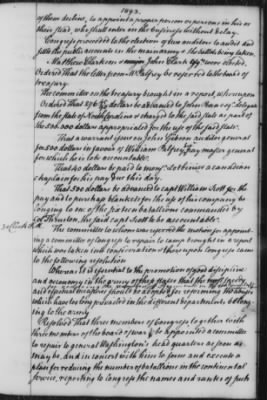 1093.
of them decline, to appoint a proper person or persons in his or
their stead, who shall enter on their business without delay.
Congress proceeded to the election of two auditors to audit and
settle the public accounts in the main army & the ballots being taken,
Matthew Clarkson & major John Clark Esqrs. were elected.
Ordered That the letter from Mr. Palfrey be referred to the board of
treasury.
The committee on the treasury brought in a report, whereupon
Ordered That dollars be advanced to John Penn esqr. delegate
from the state of North Carolina & charged to the said state as part of
the 500,000 dollars appropriated for the use of the said state.
That a warrant issue on John Gibson auditor general
for 500000 dollars in favour of William Palfrey pay master general
for which he is to be accountable.
That 40 dollars be paid to a canadian
chaplain for his pay & to this day.
That 500 dollars be advanced to capt William Scott for the
pay and to purchase blankets for the use of his company be
longing to one of the sixteen battalions commanded by
Col. the said capt. Scott to be accountable.
The committee to whom was referred the motion for appoint
ing a committee of Congress to repair to camp brought in a report
which was taken into consideration & thereupon Congress came
to the following resolution
Whereas it is essential to the promotion of good discipline
and oeconomy in the army of these states that the most
and
which have long prevailed in the different departments belong
ing to the army
Resolved That three members of Congress together with
three members of the board of war be appointed a committee
to repair to general Washington's head quarters as soon as
may be, and in concert with him to form and execute a
plan for reducing the number of battalions in the continental
service, reporting to Congress the names and ranks of such